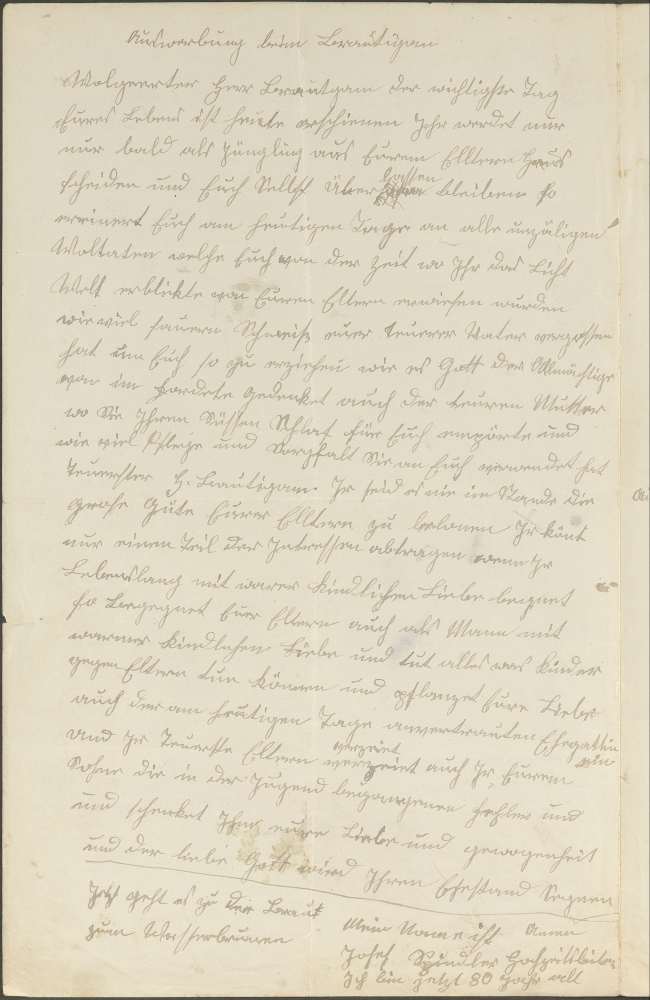 Auswerbung beim Bräutigam
Wolgeerter Herr Bräutgam der wichtigste Tag
Eures Lebens ist heute erschienen Jhr werdet nun
nur bald als Jüngling aus Eurem Elltern Haus
scheiden und Euch Selbst Über lassen bleiben so
erinert Euch am heutigen Tage an alle unzäligen
Woltaten welche Euch von der Zeit wo Jhr das Licht
Welt erblickte von Euren Eltern erwiesen wurden
wie viel sauern Schweiß euer teuerer Vater vergossen
hat um Euch so zu erziehen wie es Gott der Allmächtige
von im forderte gedenket auch der teuren Mutter
wo Sie Jhren Süssen Schlaf für Euch empörte und
wie viel Pflege und Sorgfalt Sie an Euch verwendet hat
Teuerster H. Bräutigam. Jr seid es nie im Stande die
große Güte Eurer Elltern zu belonen Jr könt
nur einen Teil der Jntressen abtragen wenn Jr
Lebenslang mit warer Kindlichen Liebe begnet
so Begegnet Euer Eltern auch als Mann mit
warmer Kindlichen Liebe und tut alles was Kinder
gegen Eltern tun können und pflanzet Eure Liebe
auch der am heutigen Tage anvertrauten Ehegattin ein
und Jr Teuerste Elltern verzeiet auch Jr Eurem
Sohne die in der Jugend begangenen Fehler und
und schenket Jhm eure Liebe und gewogenheit
und der liebe Gott wird Jhren Ehestand Segnen
Jetzt geht es zu der Braut
zum Wasserbrunnen
Amen
Mein Name ist
Josef Spindler Hochzeitsbiter
Jch bin jetzt 80 Jahr alt